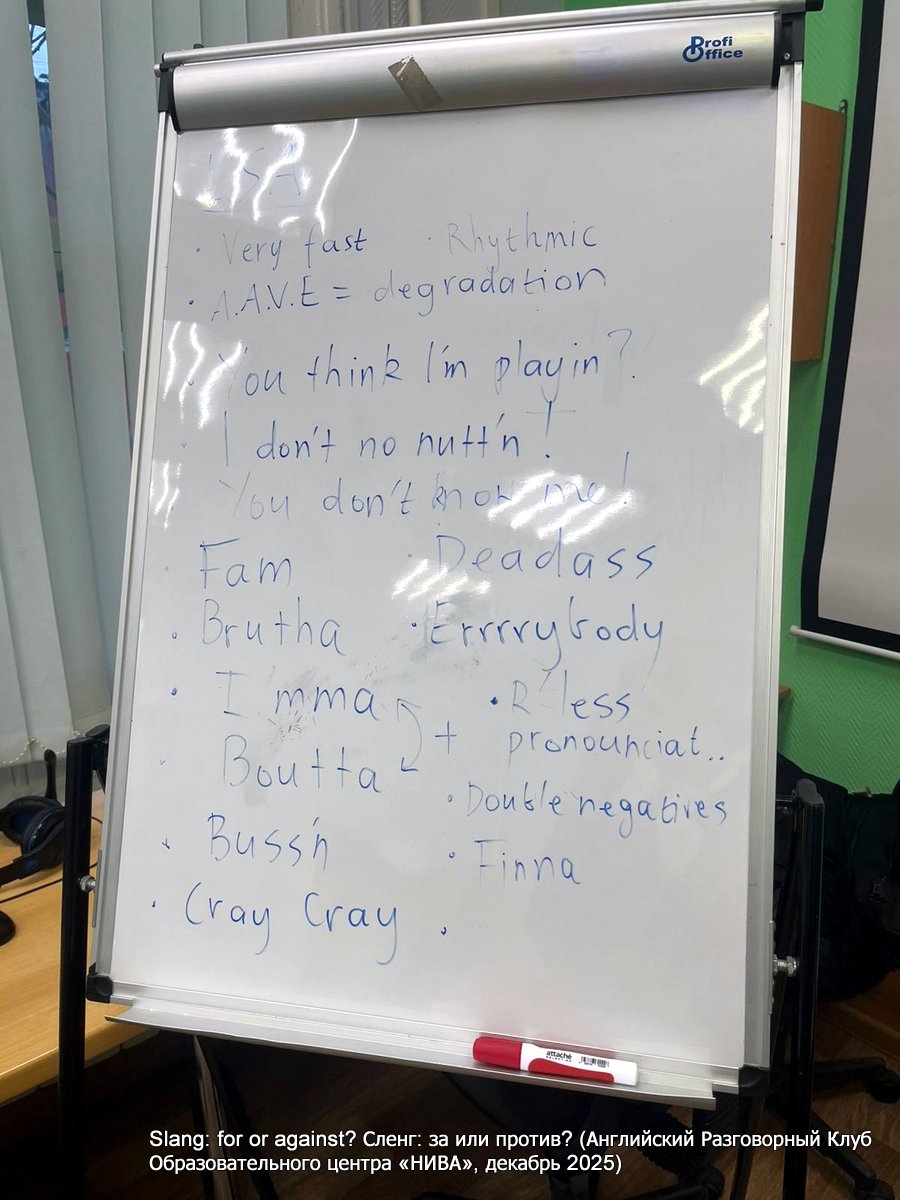 Profi
Office
USA
· Very fast · Rhythmic
· A.A.V.E = degradation
· You think I'm playin?
· I don't no nutt'n!
You don't know me!
· Fam · Deadass
· Brutha · Errrrybody
· Imma + · R'less
pronounciat..
· Boutta
· Double negatives
· Buss'n · Finna
· Cray Cray ·
attaché
Slang: for or against? Сленг: за или против? (Английский Разговорный Клуб
Образовательного центра «НИВА», декабрь 2025)